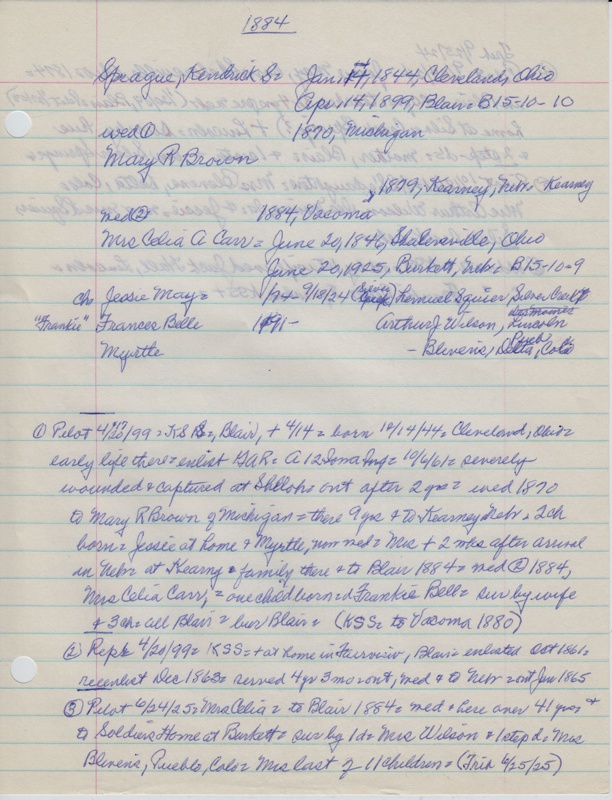 1884
Sprague, Kendrick S = Jan 14, 1844, Cleveland, Ohio
Apr 14, 1899, Blair = B15-10-10
wed ① 1870, Michigan
Mary R Brown
1879, Kearney, Nebr - Kearney
wed ② 1884, Vacoma
Mrs Celia A Carr = June 20, 1846, Shalersville, Ohio
June 20, 1925, Burkett, Nebr = B15-10-9
ch Jessie May = 1/74 - 9/18/24 Lemuel Squier Silver Creek
"Frankie" Frances Belle 1891 - Arthur J Wilson, Des Moines Lincoln
Myrtle - Blevens, Pueb Delta, Colo
① Pilot 4/20/99 = K S S =, Blair, + 4/14 = born 10/14/44 = Cleveland, Ohio =
early life there = enlist GAR = A 12 Iowa Inf = 10/6/61 = severely
wounded & captured at Shiloh = out after 2 yrs = wed 1870
to Mary R Brown of Michigan = there 9 yrs & to Kearney Nebr = 2 ch
born = Jessie at home & Myrtle, now wed = Mrs + 2 mos after arrival
in Nebr at Kearny & family there & to Blair 1884 = wed ② 1884,
Mrs Celia Carr, = one child born = d Frankie Bell = sur by wife
& 3 ch = all Blair = bur Blair = (KSS = to Vacoma 1880)
② Rep = 4/20/99 = KSS = + at home in Fairview, Blair = enlisted Oct 1861 =
reenlist Dec 1863 = served 4 yr 3 mo = out, wed & to Nebr = out Jan 1865
③ Pilot 6/24/25 = Mrs Celia = to Blair 1884 = wed & here over 41 yrs &
to Soldiers Home at Burkett = sur by 1 d = Mrs Wilson & 1 step d = Mrs
Blevens, Pueblo, Colo = Mrs last of 11 children = (Trib 6/25/25)